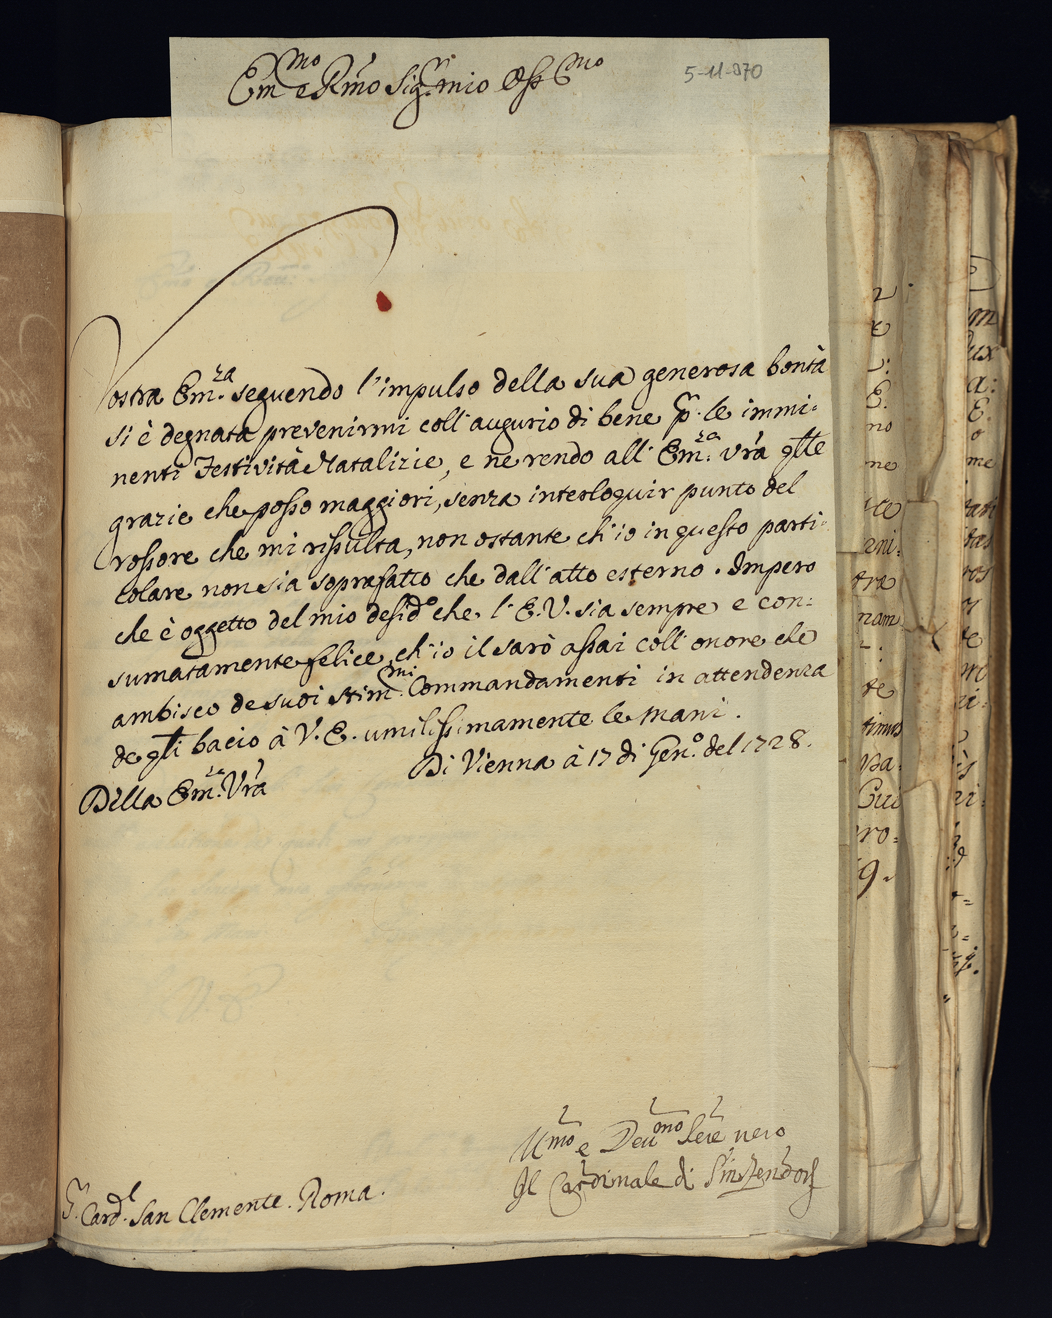 Em.mo e Rmo Sig.r mio Oss.mo
5-11-870
Vostra Em.za seguendo l'impulso della sua generosa bontà
si è degnata prevenirmi coll'augurio di bene p. le immi:
nenti Festività Natalizie, e ne rendo all' Em.za Vra qlle
grazie che posso maggiori, senza interloquir punto del
rossore che mi risulta, non ostante ch'io in questo parti:
colare non sia soprafatto che dall'atto esterno. Impero
che è oggetto del mio desid.o che l' E. V. sia sempre e con:
sumatamente felice, ch'io il sarò assai coll'onore che
ambisco de suoi stim.mi Commandamenti in attendenza
de gli bacio à V. E. umilissimamente le mani.
Di Vienna à 17 di Gen.o del 1728.
Della Em.za Vra
Umo e Deu.mo Sere vero
Il Cardinale di Sinzendorf
S.r Card.l San Clemente. Roma.